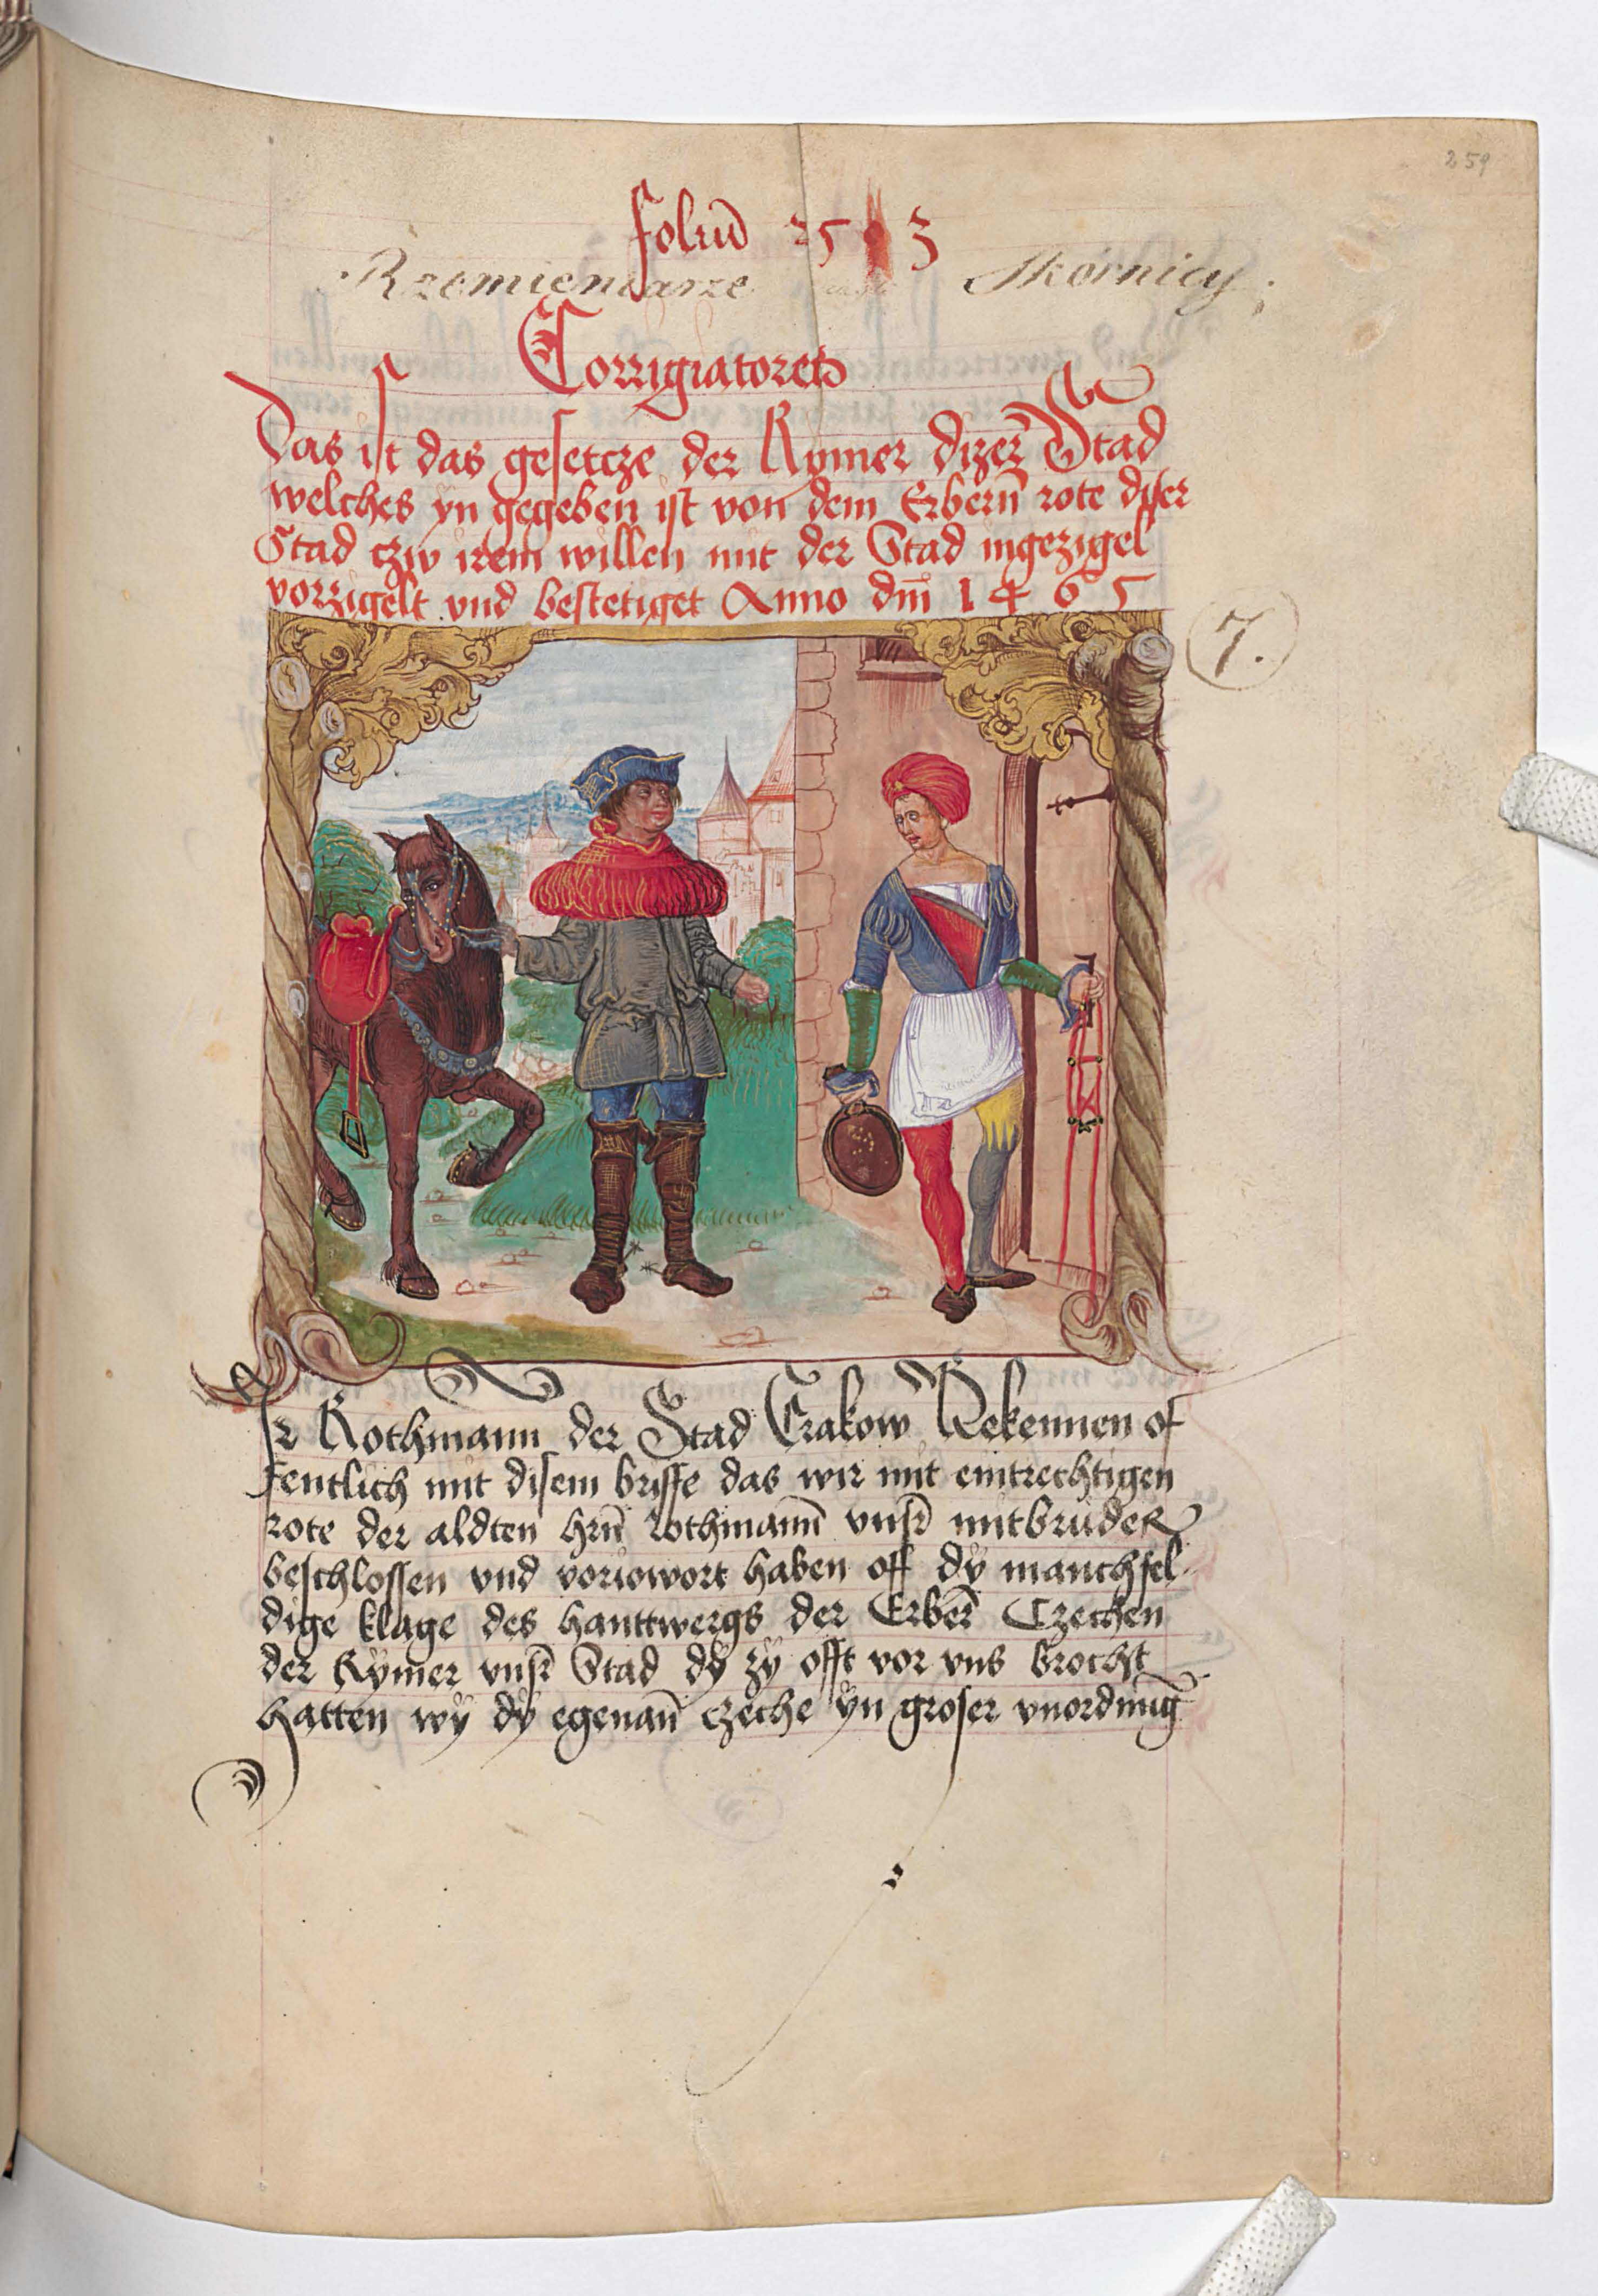 259
foliū 253
Rzemieniarze Skornicy
Corrigiatores
Das ist das gesetcze der Rymer dizer Stad
welches yn gegeben ist von dem Erbern̄ rote diser
Stad czw irem willen mit der Stad ingezigel
vorzigelt vnd bestetiget Anno dm̄ 1465
7.
Ir Rothmann der Stad Crakow Bekennen of
fentlich mit disem briffe das wir mit eintrechtigen
rote der aldten hrn̄ rothmann̄ vnsr̄ mitbruder
beschlossen vnd haben off dy manchfel-
dige klage des hanttwergs der Erber̄ Czechen
der Rymer vnsr̄ Stad dy zy offt vor vns brocht
hatten wy dy egenan̄ czeche yn groser vnordnūg